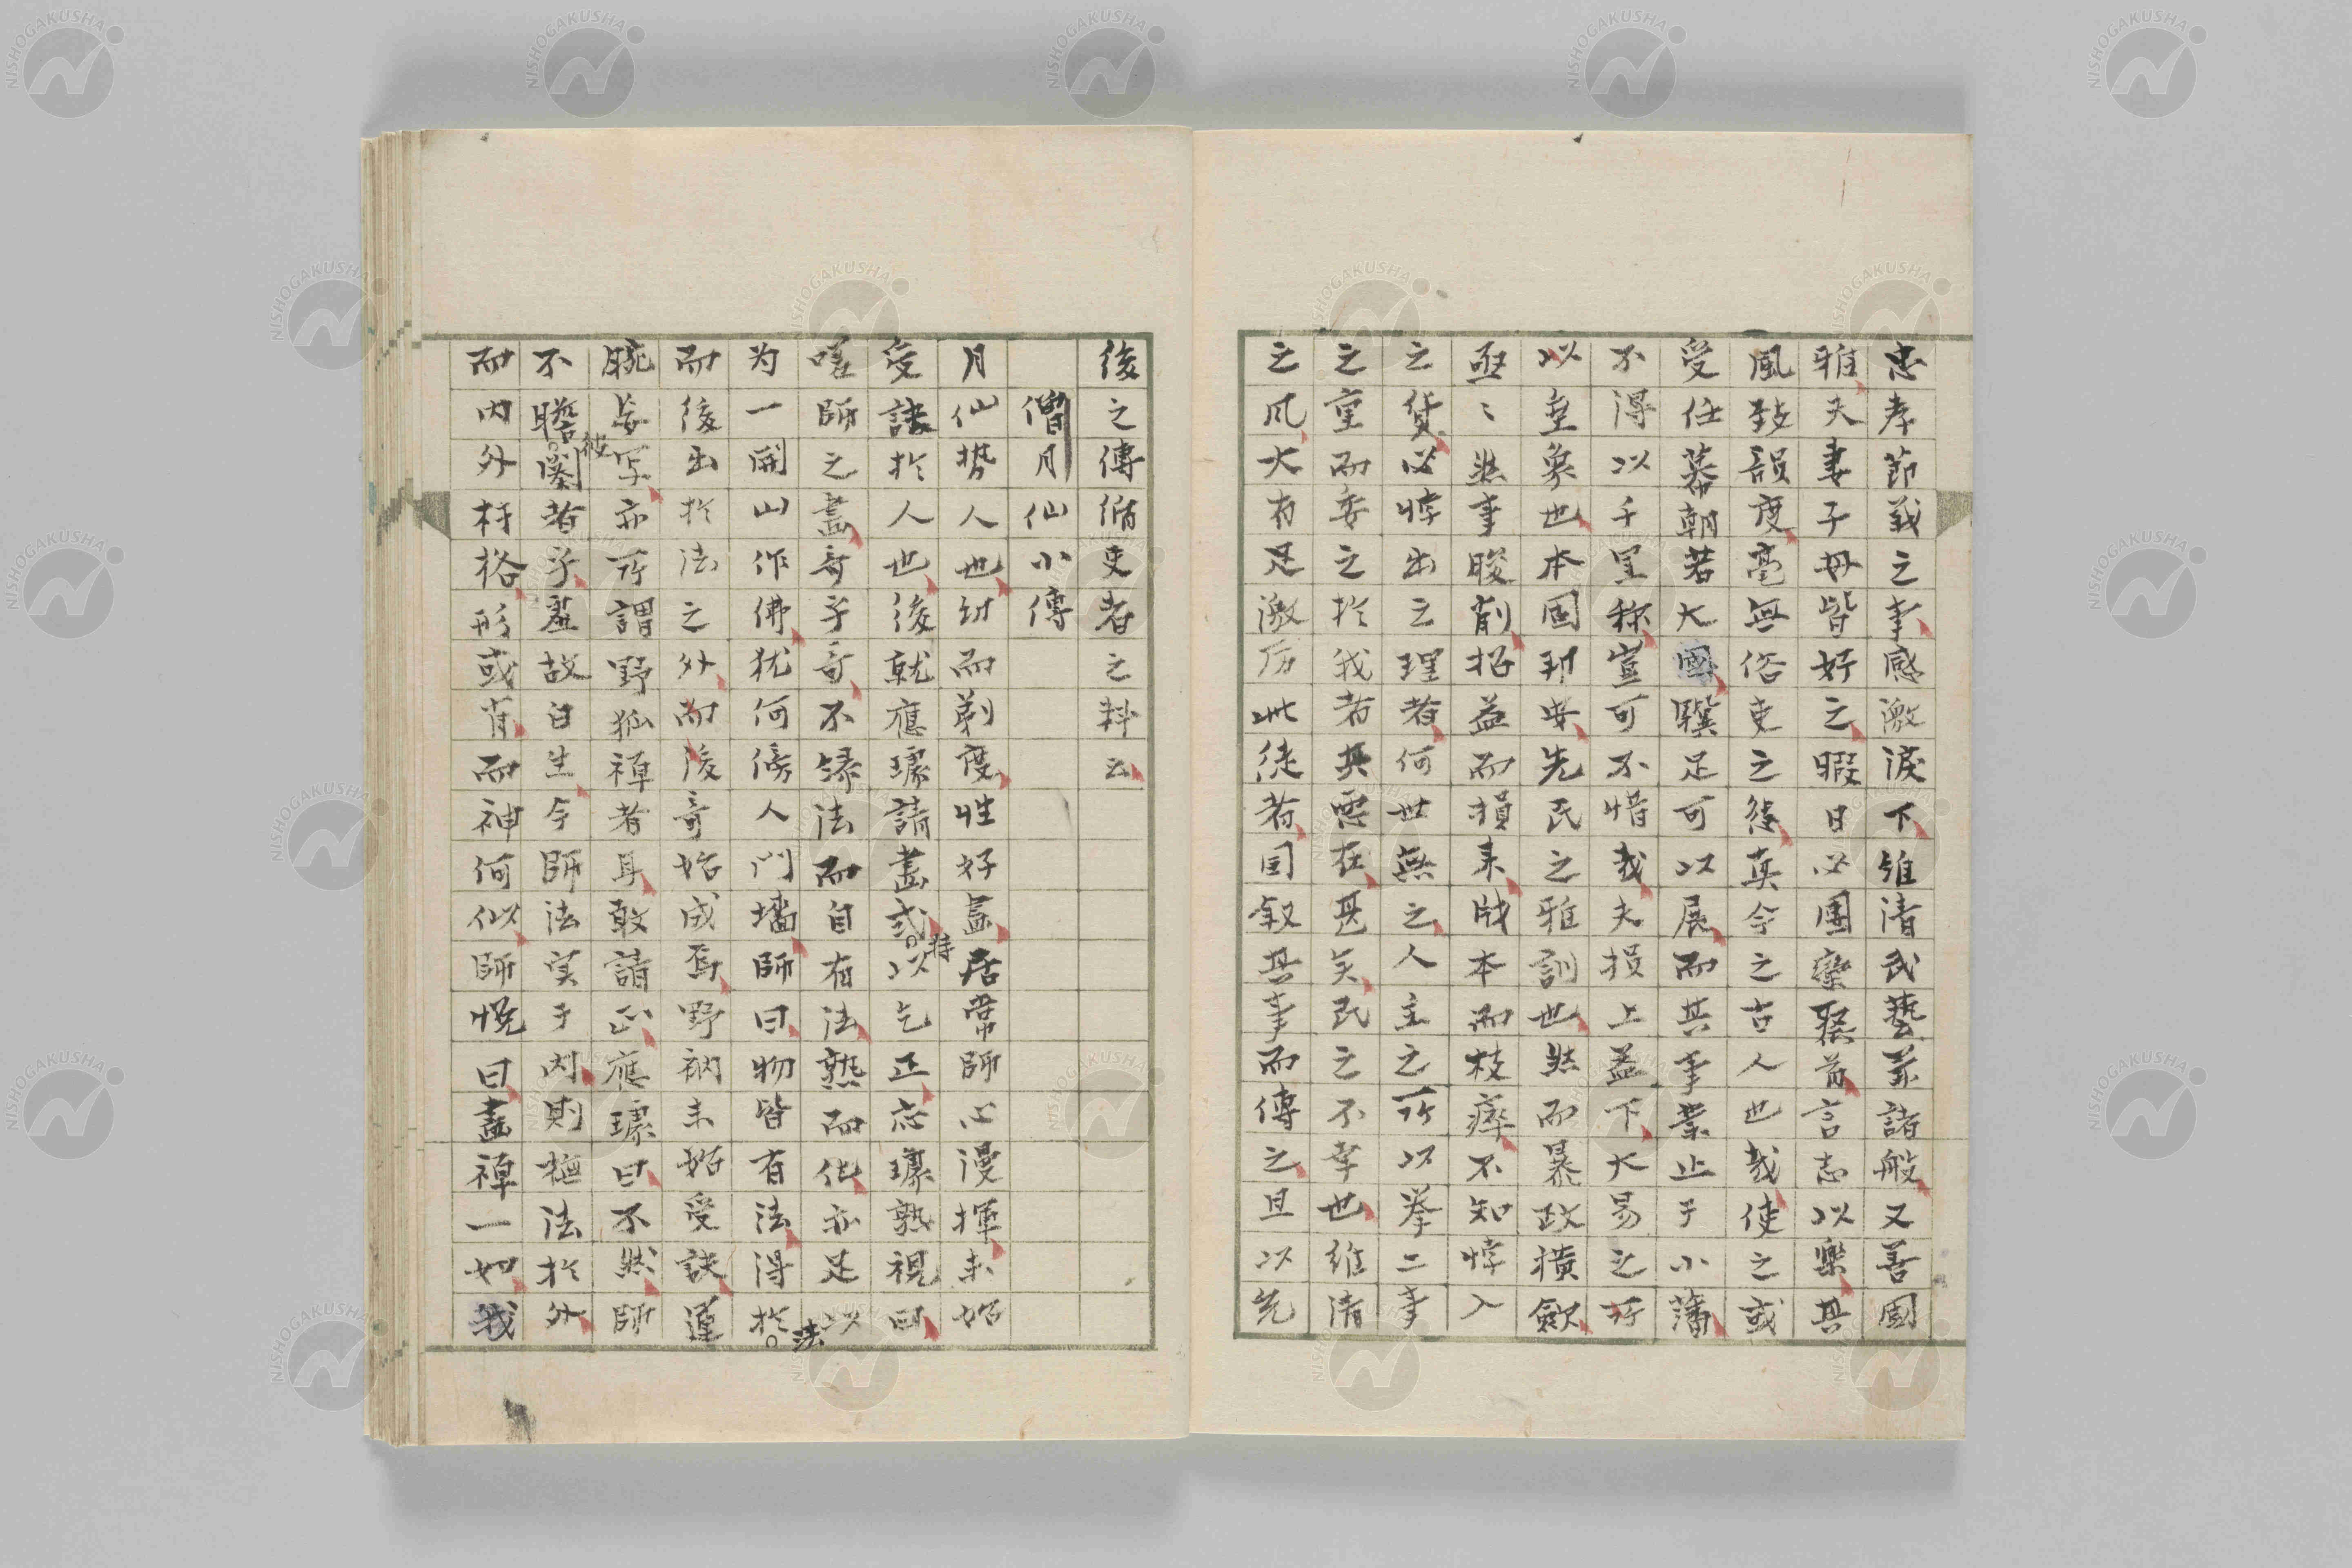 忠孝節義之事感激淚下維清武藝兼諸般又善國
雅夫妻子母皆好之暇日必團欒聚首言志以樂其
風致韻度毫無俗吏之態真今之古人也哉使之或
受任幕朝若大國驥足可以展而其事業止于小藩
不得以千里称豈可不惜哉夫損上益下大易之所
以垂象也本国邦安先民之雅訓也然而暴政橫斂
亟〻然事朘削招益而損来戕本而枝瘁不知悖入
之貨必悖出之理者何世無之人主之所以挙二事
之重而委之於我者其意在甚矣民之不幸也維清
之风大有足激厉此徒者因叙其事而傳之且以先
後之傳循吏者之料云
僧月仙小傳
月仙勢人也幼而剃度性好畫居常師心漫揮未始
受訣於人也後就應璩請畫式持以乞正応璩熟視曰
嘻師之畫奇乎奇不緣法而自有法熟而化亦足以
为一開山作佛犹何傍人門墻師曰物皆有法得於法
而後出於法之外而後奇始成焉野衲未始受訣運
腕妄写亦所謂野狐禅者耳敢請正應璩曰不然師
不瞻彼閹者乎羞故白生今師法実于内則極法於外
而内外扞格形或肖而神何似師悦曰畫禅一如我